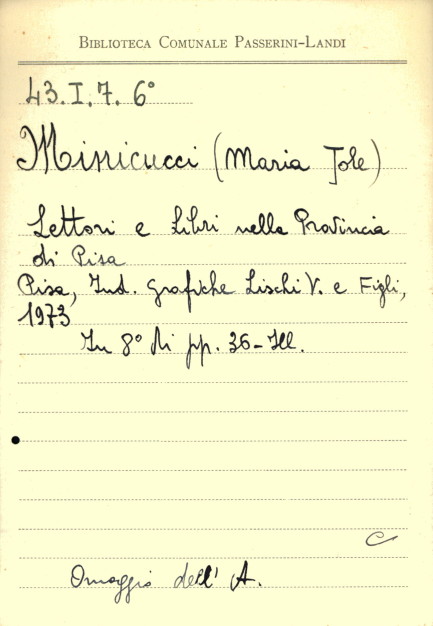 BIBLIOTECA COMUNALE PASSERINI-LANDI
43.I.7.6°
Minicucci (Maria Jole)
Lettori e Libri nella Provincia
di Pisa
Pisa, Ind. Grafiche Lischi V. e Figli,
1973
In 8° di pp. 36 - Ill.
C
Omaggio dell' A.